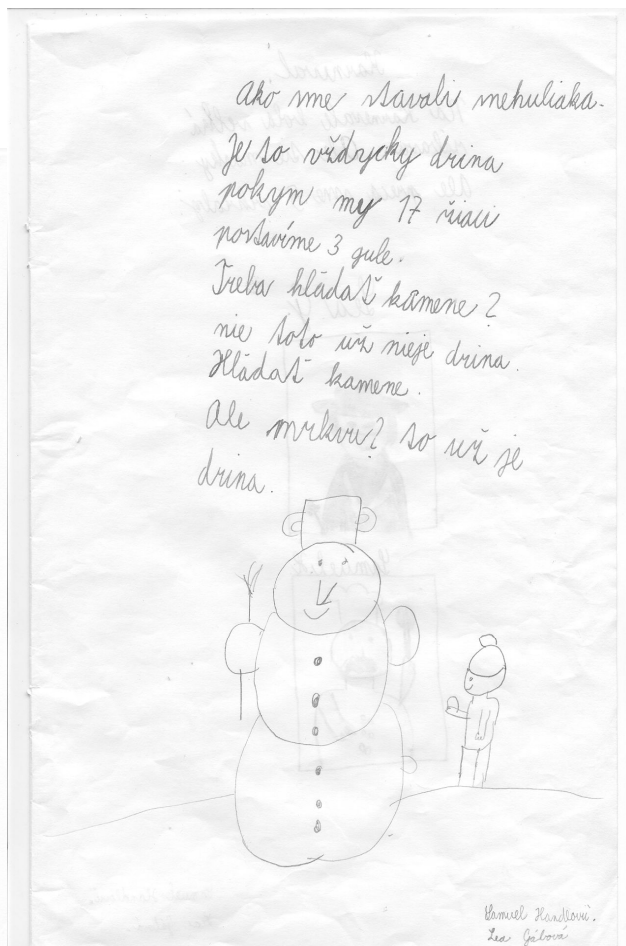 Ako sme stavali snehuliaka.
Je to vždycky drina
pokym my 17 žiaci
postavíme 3 gule.
Treba hládať kamene?
nie toto už nieje drina.
Hládať kamene.
Ale mrkvu? to už je
drina.
Samuel Handlovič.
Lea Gábová